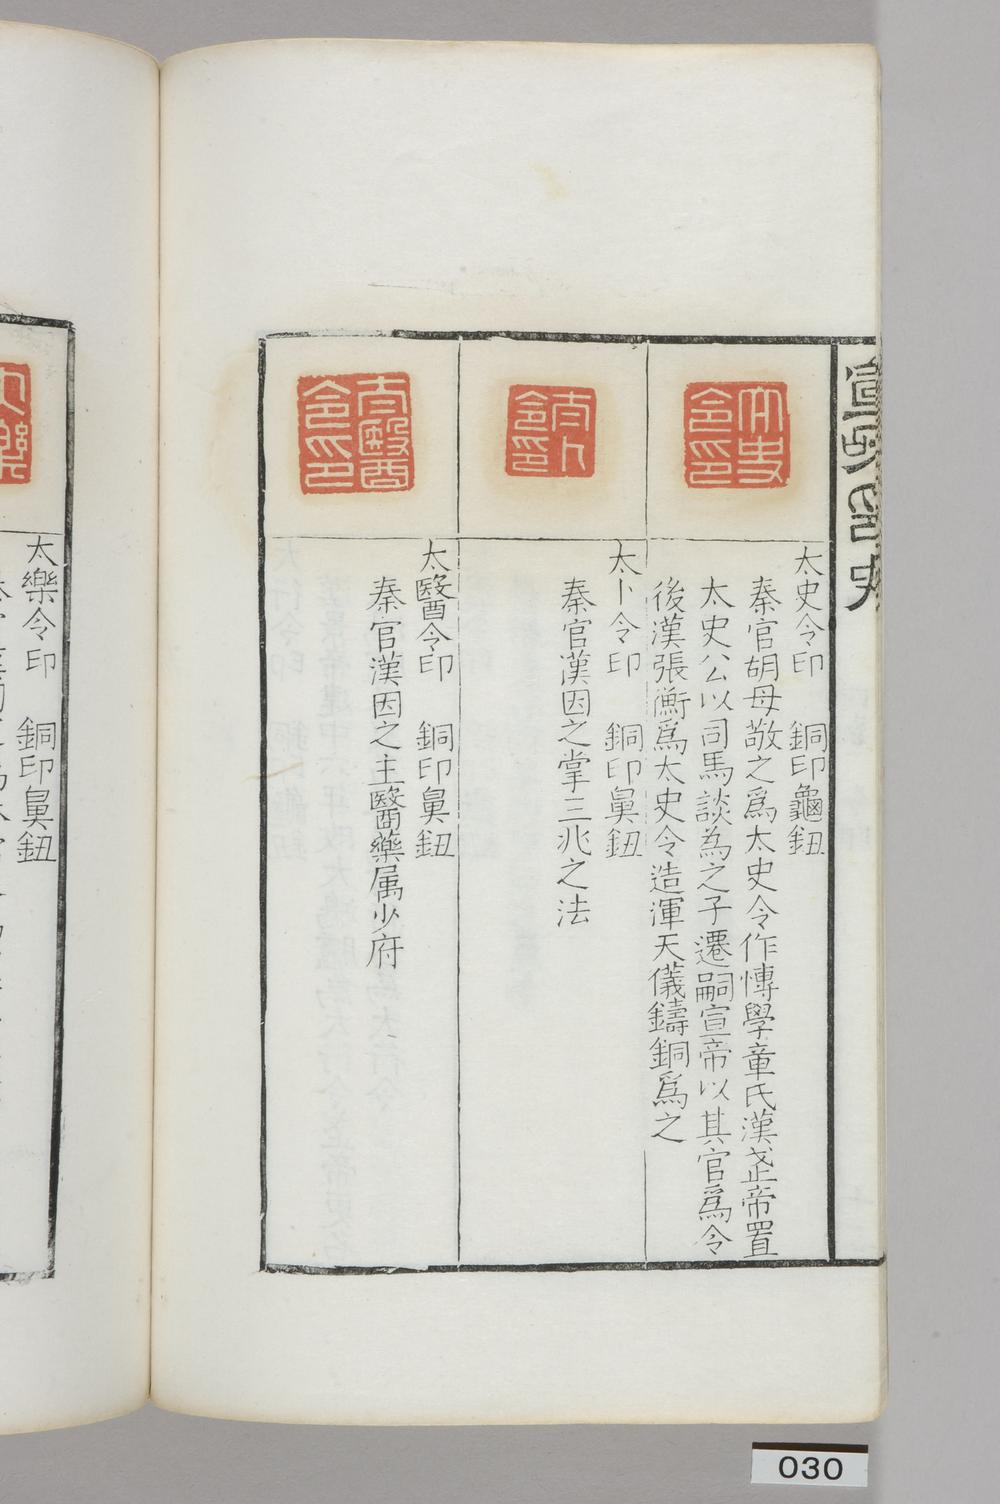 宣和印史
太史令印
太史令印　銅印龜鈕
秦官胡母敬之爲太史令作愽學章氏漢武帝置
太史公以司馬談為之子遷嗣宣帝以其官爲令
後漢張衡爲太史令造渾天儀鑄銅爲之
太卜令印
太卜令印　銅印鼻鈕
秦官漢因之掌三兆之法
太醫令印
太醫令印　銅印鼻鈕
秦官漢因之主醫藥属少府
太樂
太樂令印　銅印鼻鈕
030